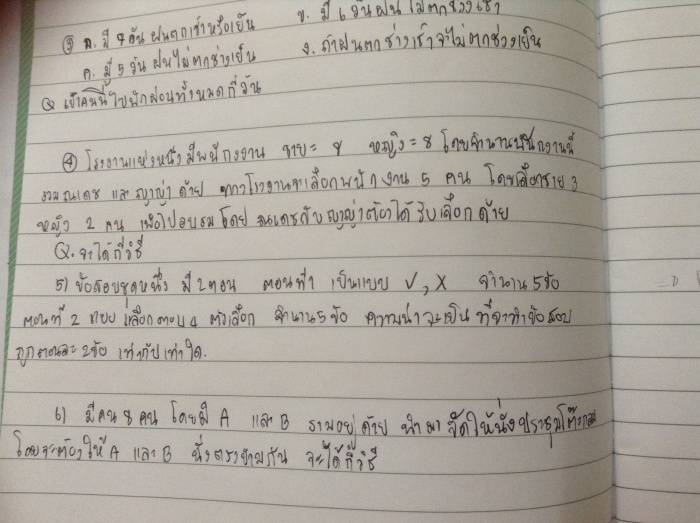 ③ ก. มี 7 วัน ฝนตกเช้าหรือเย็น ข. มี 6 วันฝนไม่ตกช่วงเช้า
ค. มี 5 วัน ฝนไม่ตกช่วงเย็น ง. ถ้าฝนตกช่วงเช้าจะไม่ตกช่วงเย็น
Q เข้าคนนี้ไปพักผ่อนทั้งหมดกี่วัน
④ โรงงานแห่งหนึ่งมีพนักงาน ชาย = 8 หญิง = 8 โดยจำนวนพนักงานนี้
รวมณเดช และ ญาญ่า ด้วย ทางโรงงานจะเลือกพนักงาน 5 คน โดยเลือกชาย 3
หญิง 2 คน เพื่อไปอบรม โดย ณเดชกับญาญ่าต้องได้รับเลือกด้วย
Q. จะได้กี่วิธี
5) ข้อสอบชุดหนึ่ง มี 2 ตอน ตอนที่ 1 เป็นแบบ ✓, X จำนวน 5 ข้อ
ตอนที่ 2 แบบ เลือกตอบ 4 ตัวเลือก จำนวน 5 ข้อ ความน่าจะเป็น ที่จะทำข้อสอบ
ถูกตอนละ 2 ข้อ เท่ากับเท่าใด.
6) มีคน 8 คน โดยมี A และ B รวมอยู่ด้วย นำมาจัดให้นั่งประชุมโต๊ะกลม
โดยจะต้องให้ A และ B นั่งตรงข้ามกัน จะได้กี่วิธี